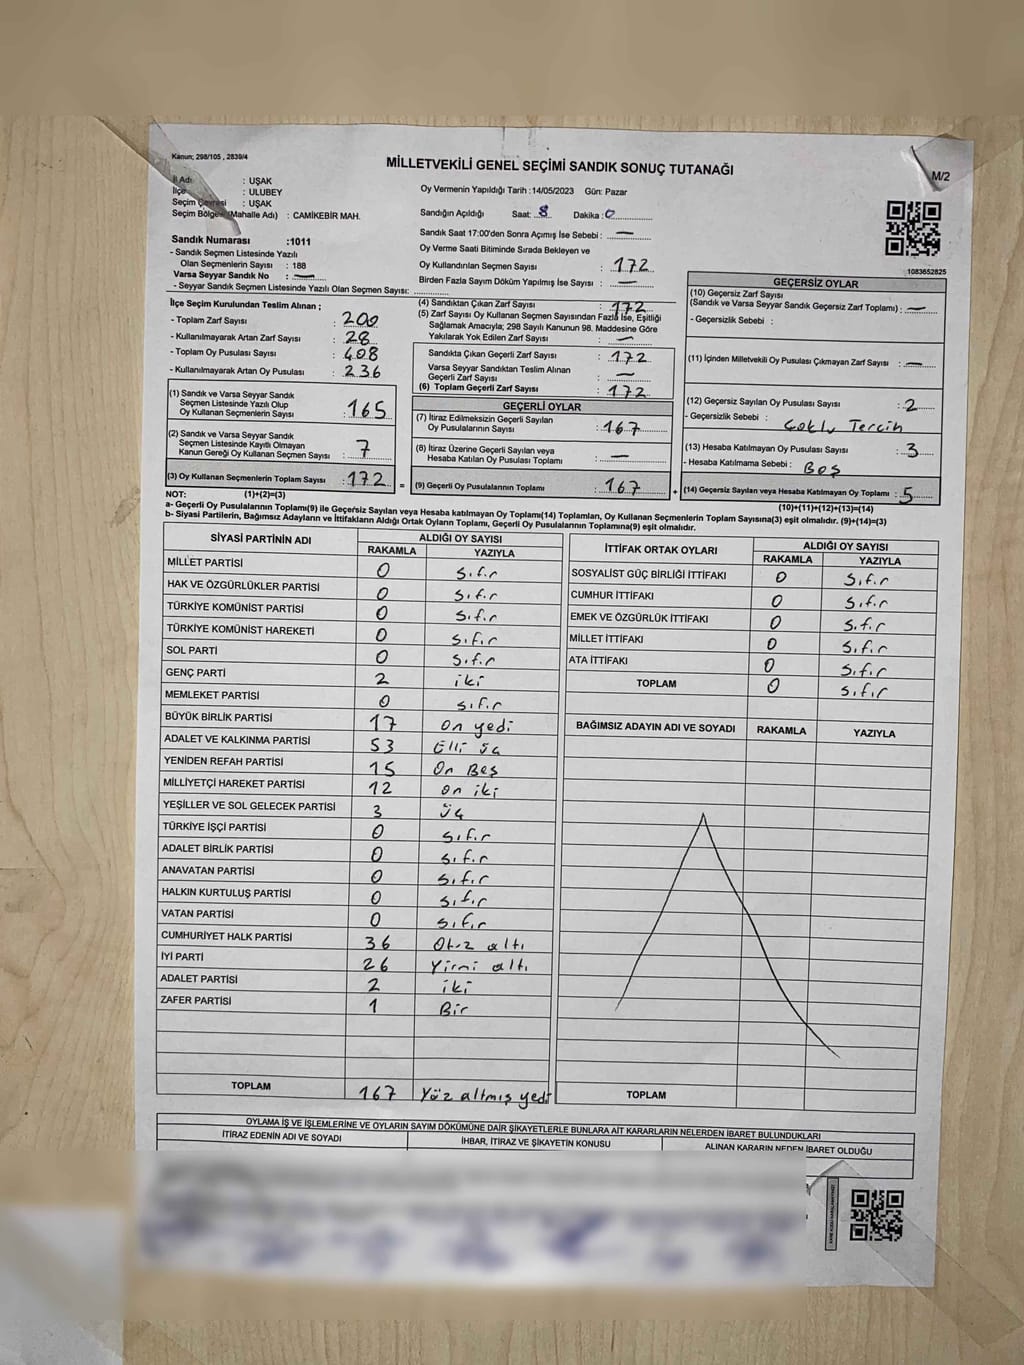 Kanun; 298/105 , 2839/4
MİLLETVEKİLİ GENEL SEÇİMİ SANDIK SONUÇ TUTANAĞI
M/2
İl Adı : UŞAK
İlçe : ULUBEY
Seçim Çevresi : UŞAK
Seçim Bölgesi (Mahalle Adı) : CAMİKEBİR MAH.
Sandık Numarası :1011
- Sandık Seçmen Listesinde Yazılı
Olan Seçmenlerin Sayısı : 188
Varsa Seyyar Sandık No : —
- Seyyar Sandık Seçmen Listesinde Yazılı Olan Seçmen Sayısı:
Oy Vermenin Yapıldığı Tarih :14/05/2023 Gün: Pazar
Sandığın Açıldığı Saat: 8 Dakika : 0
Sandık Saat 17:00'den Sonra Açımış İse Sebebi : —
Oy Verme Saati Bitiminde Sırada Bekleyen ve
Oy Kullandırılan Seçmen Sayısı : 172
Birden Fazla Sayım Döküm Yapılmış İse Sayısı : —
1083652825
İlçe Seçim Kurulundan Teslim Alınan ;
- Toplam Zarf Sayısı : 200
- Kullanılmayarak Artan Zarf Sayısı : 28
- Toplam Oy Pusulası Sayısı : 408
- Kullanılmayarak Artan Oy Pusulası : 236
(1) Sandık ve Varsa Seyyar Sandık
Seçmen Listesinde Yazılı Olup
Oy Kullanan Seçmenlerin Sayısı : 165
(2) Sandık ve Varsa Seyyar Sandık
Seçmen Listesinde Kayıtlı Olmayan
Kanun Gereği Oy Kullanan Seçmen Sayısı : 7
(3) Oy Kullanan Seçmenlerin Toplam Sayısı : 172
(4) Sandıktan Çıkan Zarf Sayısı : 172
(5) Zarf Sayısı Oy Kullanan Seçmen Sayısından Fazla İse, Eşitliği
Sağlamak Amacıyla; 298 Sayılı Kanunun 98. Maddesine Göre
Yakılarak Yok Edilen Zarf Sayısı : —
Sandıkta Çıkan Geçerli Zarf Sayısı : 172
Varsa Seyyar Sandıktan Teslim Alınan
Geçerli Zarf Sayısı : —
(6) Toplam Geçerli Zarf Sayısı : 172
GEÇERLİ OYLAR
(7) İtiraz Edilmeksizin Geçerli Sayılan
Oy Pusulalarının Sayısı : 167
(8) İtiraz Üzerine Geçerli Sayılan veya
Hesaba Katılan Oy Pusulası Toplamı : —
= (9) Geçerli Oy Pusulalarının Toplamı : 167
GEÇERSİZ OYLAR
(10) Geçersiz Zarf Sayısı
(Sandık ve Varsa Seyyar Sandık Geçersiz Zarf Toplamı) : —
- Geçersizlik Sebebi :
(11) İçinden Milletvekili Oy Pusulası Çıkmayan Zarf Sayısı : —
(12) Geçersiz Sayılan Oy Pusulası Sayısı : 2
- Geçersizlik Sebebi : Çoklu Tercih
(13) Hesaba Katılmayan Oy Pusulası Sayısı : 3
- Hesaba Katılmama Sebebi : Boş
+ (14) Geçersiz Sayılan veya Hesaba Katılmayan Oy Toplamı : 5
NOT: (1)+(2)=(3)
(10)+(11)+(12)+(13)=(14)
a- Geçerli Oy Pusulalarının Toplamı(9) ile Geçersiz Sayılan veya Hesaba katılmayan Oy Toplamı(14) Toplamları, Oy Kullanan Seçmenlerin Toplam Sayısına(3) eşit olmalıdır. (9)+(14)=(3)
b- Siyasi Partilerin, Bağımsız Adayların ve İttifakların Aldığı Ortak Oyların Toplamı, Geçerli Oy Pusulalarının Toplamına(9) eşit olmalıdır.
SİYASİ PARTİNİN ADI ALDIĞI OY SAYISI
RAKAMLA YAZIYLA
MİLLET PARTİSİ 0 Sıfır
HAK VE ÖZGÜRLÜKLER PARTİSİ 0 Sıfır
TÜRKİYE KOMÜNİST PARTİSİ 0 Sıfır
TÜRKİYE KOMÜNİST HAREKETİ 0 Sıfır
SOL PARTİ 0 Sıfır
GENÇ PARTİ 2 iki
MEMLEKET PARTİSİ 0 Sıfır
BÜYÜK BİRLİK PARTİSİ 17 On yedi
ADALET VE KALKINMA PARTİSİ 53 Elli üç
YENİDEN REFAH PARTİSİ 15 On Beş
MİLLİYETÇİ HAREKET PARTİSİ 12 on iki
YEŞİLLER VE SOL GELECEK PARTİSİ 3 üç
TÜRKİYE İŞÇİ PARTİSİ 0 Sıfır
ADALET BİRLİK PARTİSİ 0 Sıfır
ANAVATAN PARTİSİ 0 Sıfır
HALKIN KURTULUŞ PARTİSİ 0 Sıfır
VATAN PARTİSİ 0 Sıfır
CUMHURİYET HALK PARTİSİ 36 Otuz altı
İYİ PARTİ 26 Yirmi altı
ADALET PARTİSİ 2 iki
ZAFER PARTİSİ 1 Bir
TOPLAM 167 Yüz altmış yedi
İTTİFAK ORTAK OYLARI ALDIĞI OY SAYISI
RAKAMLA YAZIYLA
SOSYALİST GÜÇ BİRLİĞİ İTTİFAKI 0 Sıfır
CUMHUR İTTİFAKI 0 Sıfır
EMEK VE ÖZGÜRLÜK İTTİFAKI 0 Sıfır
MİLLET İTTİFAKI 0 Sıfır
ATA İTTİFAKI 0 Sıfır
TOPLAM 0 Sıfır
BAĞIMSIZ ADAYIN ADI VE SOYADI RAKAMLA YAZIYLA
TOPLAM
OYLAMA İŞ VE İŞLEMLERİNE VE OYLARIN SAYIM DÖKÜMÜNE DAİR ŞİKAYETLERLE BUNLARA AİT KARARLARIN NELERDEN İBARET BULUNDUKLARI
İTİRAZ EDENİN ADI VE SOYADI İHBAR, İTİRAZ VE ŞİKAYETİN KONUSU ALINAN KARARIN NEDEN İBARET OLDUĞU